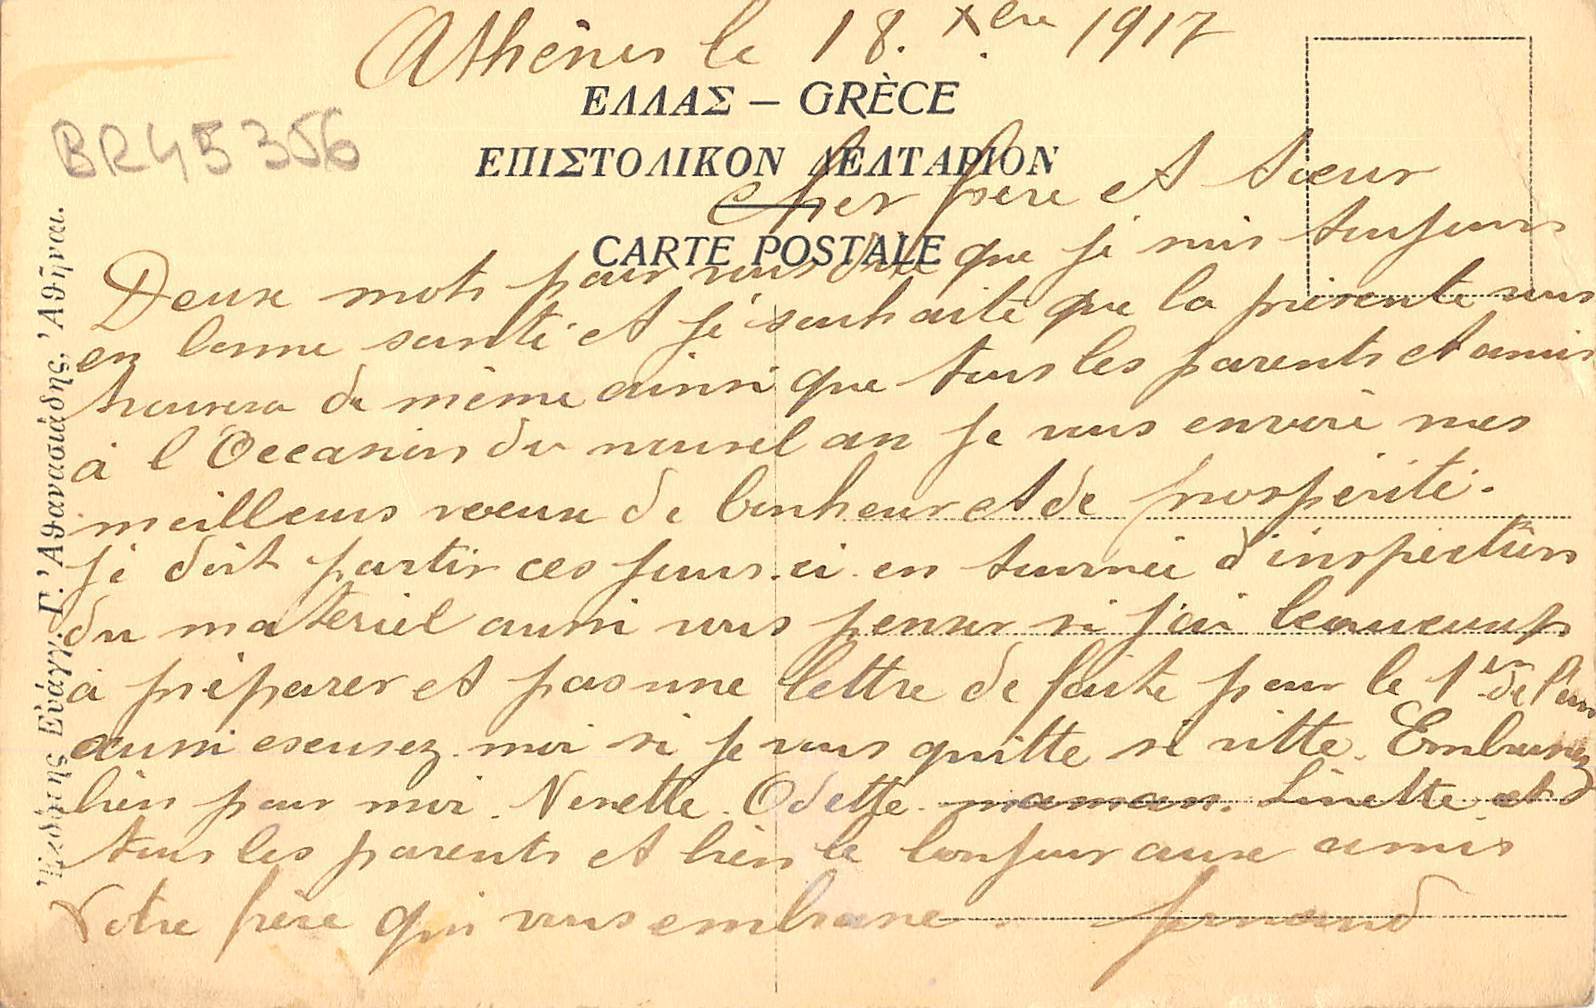 Athènes le 18. Xbre 1917
ΕΛΛΑΣ — GRÈCE
BR45356
ΕΠΙΣΤΟΛΙΚΟΝ ΔΕΛΤΑΡΙΟΝ
Cher frère et Sœur
CARTE POSTALE
Deux mots pour vous dire que je suis toujours
en bonne santé et je souhaite que la présente vous
trouvera de même ainsi que tous les parents et amis
à l'Occasion du nouvel an je vous envoie mes
meilleurs vœux de bonheur et de prosperité.
je doit partir ces jours.ci. en tournée d'inspection
du materiel aussi vous penser si j'ai beaucoup
à préparer et pas une lettre de faite pour le 1er de l'an
aussi escusez moi si je vous quitte si vitte. Embrassez
bien pour moi. Nenette. Odette. maman. Linette et
tous les parents et bien le bonjour aux amis
Votre frère qui vous embrasse. fernand
Ἐκδότης Εὐάγγ. Γ. Ἀθανασιάδης, Ἀθῆναι.